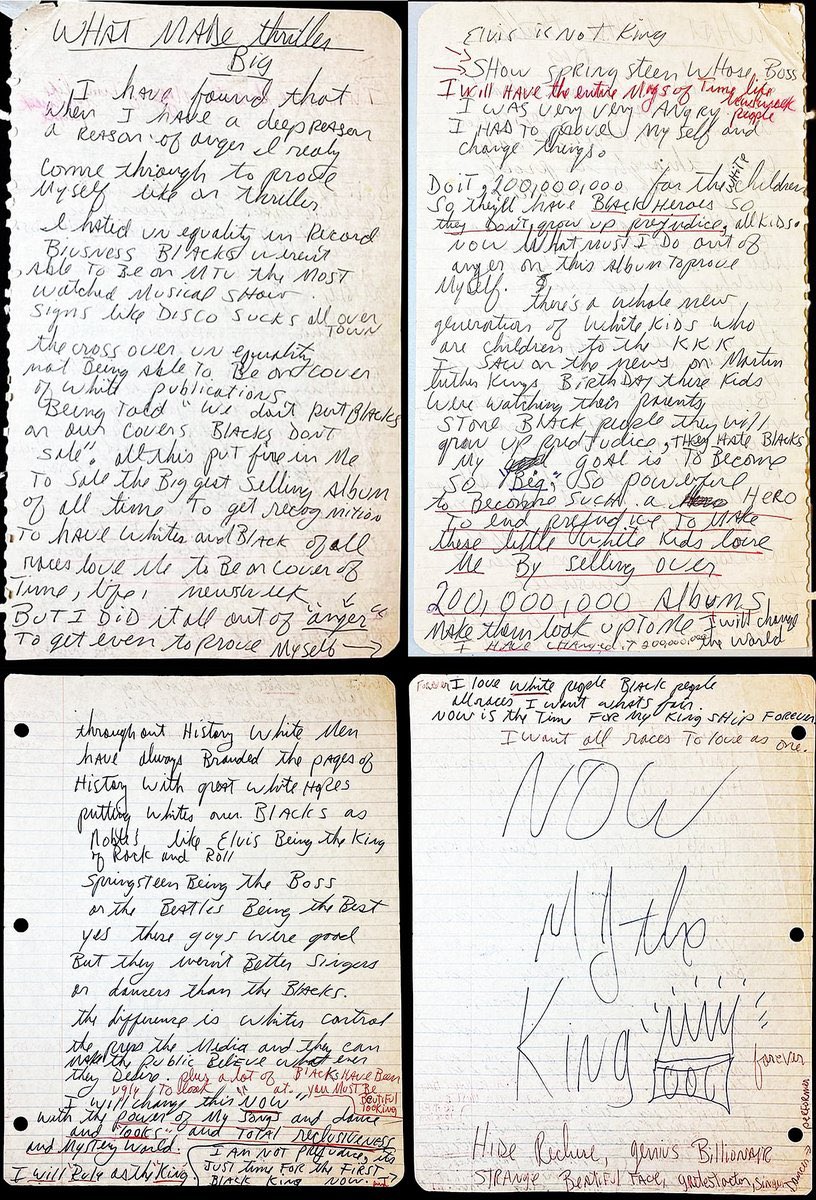 WHAT MADE thriller
Big
I have found that
when I have a deep reason
a reason of anger I realy
come through to prove
Myself like on thriller
I hated un equality in Record
Biusness Blacks weren't
Able To Be on MTV the Most
watched Musical Show.
Signs like DISCO SUCKS all over
TOWN
the cross over un equality
not Being Able to Be on cover
of white publications
Being Told "we don't put Blacks
on our covers Blacks Dont
Sale". all this put fire in Me
To Sale the Biggest Selling Album
of all time To get recognition
To have whites and Black of all
races love Me to Be on cover of
Time, life, newsweek
BUT I DID it all out of "anger"
To get even to prove Myself →
Elvis is Not King
→ SHOW SpringSteen Whose Boss
I will HAVE the entire Mags of Time life
newsweek
people
I was very very Angry
I HAD to prove My self and
change things.
Do it, 200,000,000 for the white children
So they'll have Black Heroes So
they Don't grow up prejudice, all Kids.
now What must I Do out of
anger on this Album To prove
Myself.
there's a whole new
generation of white Kids who
are children to the KKK
I saw on the news on Martin
luther Kings BirthDay these Kids
were watching their parents
Stone Black people they will
grow up predjudice, They Hate Blacks
My goal is To Become
So "Big", So powerful
to Become Such a Hero
To end prejudice To Make
these little white Kids love
Me By Selling over
200,000,000 Albums
Make them look up To Me I will change
the world
I Have changed it 200,000,000
throughout History White Men
have always Branded the pages of
History with great white Hopes
putting whites over Blacks as
Nobles like Elvis Being the King
of Rock and Roll
Springsteen Being the Boss
or the Beatles Being the Best
yes these guys were good
But they weren't Better Singers
or dancers than the Blacks.
the difference is whites control
the press the Media and they can
make the public Believe what ever
they Desire plus a lot of Blacks Have Been
ugly to look at. you Must Be
Beutiful
looking
I will change this NOW"
with the power of My songs and dance
and "looks" and Total reclusiveness
and Mystery world.
I will Rule as the King
I AM NOT prejudice, its
Just time FOR the FIRST
BLACK KING NOW.
I love white people Black people
all races, I want whats fair.
NOW is the Time FOR My King Ship Forever
I want all races To love as one.
NOW
My the
King
forever
Hide Recluse, genius Billionaire
STRANGE, Beutiful Face, gratest actor, Singer
Dancer
performer